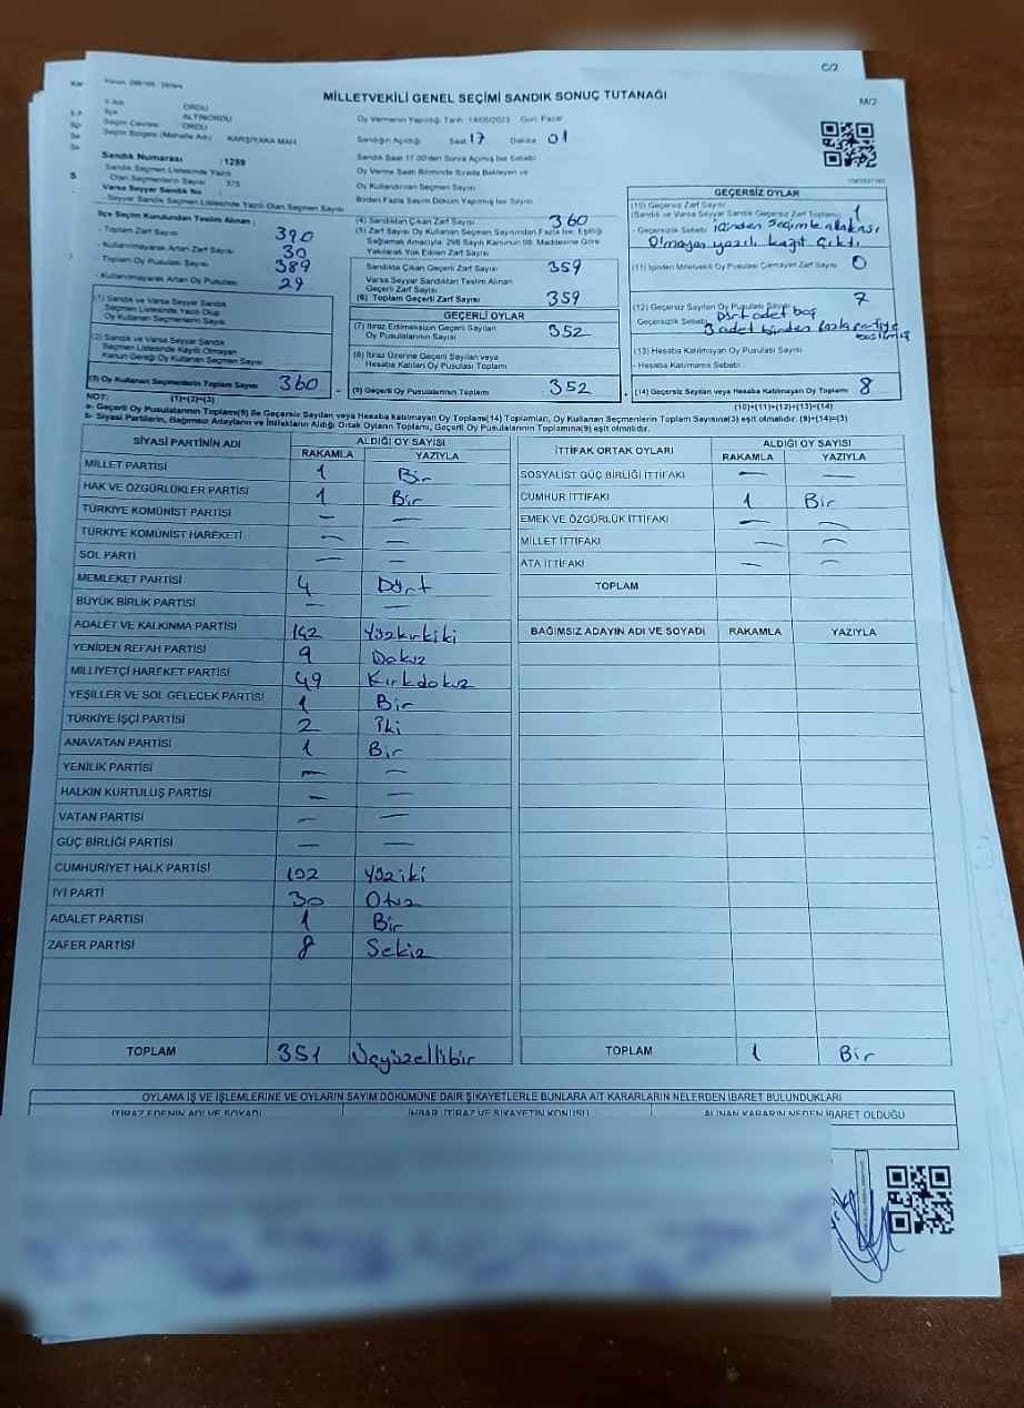 C/2
MİLLETVEKİLİ GENEL SEÇİMİ SANDIK SONUÇ TUTANAĞI
M/2
İl Adı : ORDU
İlçe : ALTINORDU
Seçim Çevresi : ORDU
Seçim Bölgesi (Mahalle Adı) : KARŞIYAKA MAH
Oy Vermenin Yapıldığı Tarih : 14/05/2023 Gün: Pazar
Sandığın Açıldığı Saat 17 Dakika 01
Sandık Saat 17.00'den Sonra Açılmış İse Sebebi
Oy Verme Saati Bitiminde Sırada Bekleyen ve
Oy Kullandırılan Seçmen Sayısı
Birden Fazla Sayım Döküm Yapılmış İse Sayısı
Sandık Numarası : 1259
Sandık Seçmen Listesinde Yazılı
Olan Seçmenlerin Sayısı : 375
Varsa Seyyar Sandık No :
- Seyyar Sandık Seçmen Listesinde Yazılı Olan Seçmen Sayısı
İlçe Seçim Kurulundan Teslim Alınan :
- Toplam Zarf Sayısı 390
- Kullanılmayarak Artan Zarf Sayısı 30
Toplam Oy Pusulası Sayısı 389
- Kullanılmayarak Artan Oy Pusulası 29
(1) Sandık ve Varsa Seyyar Sandık
Seçmen Listesinde Yazılı Olup
Oy Kullanan Seçmenlerin Sayısı
(2) Sandık ve Varsa Seyyar Sandık
Seçmen Listesinde Kayıtlı Olmayan
Kanun Gereği Oy Kullanan Seçmen Sayısı
(3) Oy Kullanan Seçmenlerin Toplam Sayısı 360
(1)+(2)=(3)
(4) Sandıktan Çıkan Zarf Sayısı 360
(5) Zarf Sayısı Oy Kullanan Seçmen Sayısından Fazla İse, Eşitliği
Sağlamak Amacıyla; 298 Sayılı Kanunun 98. Maddesine Göre
Yakılarak Yok Edilen Zarf Sayısı
Sandıkta Çıkan Geçerli Zarf Sayısı 359
Varsa Seyyar Sandıktan Teslim Alınan
Geçerli Zarf Sayısı
(6) Toplam Geçerli Zarf Sayısı 359
GEÇERLİ OYLAR
(7) İtiraz Edilmeksizin Geçerli Sayılan
Oy Pusulalarının Sayısı 352
(8) İtiraz Üzerine Geçerli Sayılan veya
Hesaba Katılan Oy Pusulası Toplamı
(9) Geçerli Oy Pusulalarının Toplamı 352
GEÇERSİZ OYLAR
(10) Geçersiz Zarf Sayısı
(Sandık ve Varsa Seyyar Sandık Geçersiz Zarf Toplamı) 1
- Geçersizlik Sebebi: içinden seçimle alakası
olmayan yazılı kağıt çıktı
(11) İçinden Milletvekili Oy Pusulası Çıkmayan Zarf Sayısı 0
(12) Geçersiz Sayılan Oy Pusulası Sayısı 7
Geçersizlik Sebebi: Dört adet boş
3 adet birden fazla partiye
basılmış
(13) Hesaba Katılmayan Oy Pusulası Sayısı
- Hesaba Katılmama Sebebi :
(14) Geçersiz Sayılan veya Hesaba Katılmayan Oy Toplamı 8
(10)+(11)+(12)+(13)=(14)
NOT:
a- Geçerli Oy Pusulalarının Toplamı(9) ile Geçersiz Sayılan veya Hesaba katılmayan Oy Toplamı(14) Toplamları, Oy Kullanan Seçmenlerin Toplam Sayısına(3) eşit olmalıdır. (9)+(14)=(3)
b- Siyasi Partilerin, Bağımsız Adayların ve İttifakların Aldığı Ortak Oyların Toplamı, Geçerli Oy Pusulalarının Toplamına(9) eşit olmalıdır.
SİYASİ PARTİNİN ADI ALDIĞI OY SAYISI
RAKAMLA YAZIYLA
MİLLET PARTİSİ 1 Bir
HAK VE ÖZGÜRLÜKLER PARTİSİ 1 Bir
TÜRKİYE KOMÜNİST PARTİSİ — —
TÜRKİYE KOMÜNİST HAREKETİ — —
SOL PARTİ — —
MEMLEKET PARTİSİ 4 Dört
BÜYÜK BİRLİK PARTİSİ — —
ADALET VE KALKINMA PARTİSİ 142 Yüzkırkiki
YENİDEN REFAH PARTİSİ 9 Dokuz
MİLLİYETÇİ HAREKET PARTİSİ 49 Kırkdokuz
YEŞİLLER VE SOL GELECEK PARTİSİ 1 Bir
TÜRKİYE İŞÇİ PARTİSİ 2 İki
ANAVATAN PARTİSİ 1 Bir
YENİLİK PARTİSİ — —
HALKIN KURTULUŞ PARTİSİ — —
VATAN PARTİSİ — —
GÜÇ BİRLİĞİ PARTİSİ — —
CUMHURİYET HALK PARTİSİ 102 Yüziki
İYİ PARTİ 30 Otuz
ADALET PARTİSİ 1 Bir
ZAFER PARTİSİ 8 Sekiz
TOPLAM 351 Üçyüzellibir
İTTİFAK ORTAK OYLARI ALDIĞI OY SAYISI
RAKAMLA YAZIYLA
SOSYALİST GÜÇ BİRLİĞİ İTTİFAKI — —
CUMHUR İTTİFAKI 1 Bir
EMEK VE ÖZGÜRLÜK İTTİFAKI — —
MİLLET İTTİFAKI — —
ATA İTTİFAKI — —
TOPLAM
BAĞIMSIZ ADAYIN ADI VE SOYADI RAKAMLA YAZIYLA
TOPLAM 1 Bir
OYLAMA İŞ VE İŞLEMLERİNE VE OYLARIN SAYIM DÖKÜMÜNE DAİR ŞİKAYETLERLE BUNLARA AİT KARARLARIN NELERDEN İBARET BULUNDUKLARI
İTİRAZ EDENİN ADI VE SOYADI İHBAR, İTİRAZ VE ŞİKAYETİN KONUSU ALINAN KARARIN NEDEN İBARET OLDUĞU